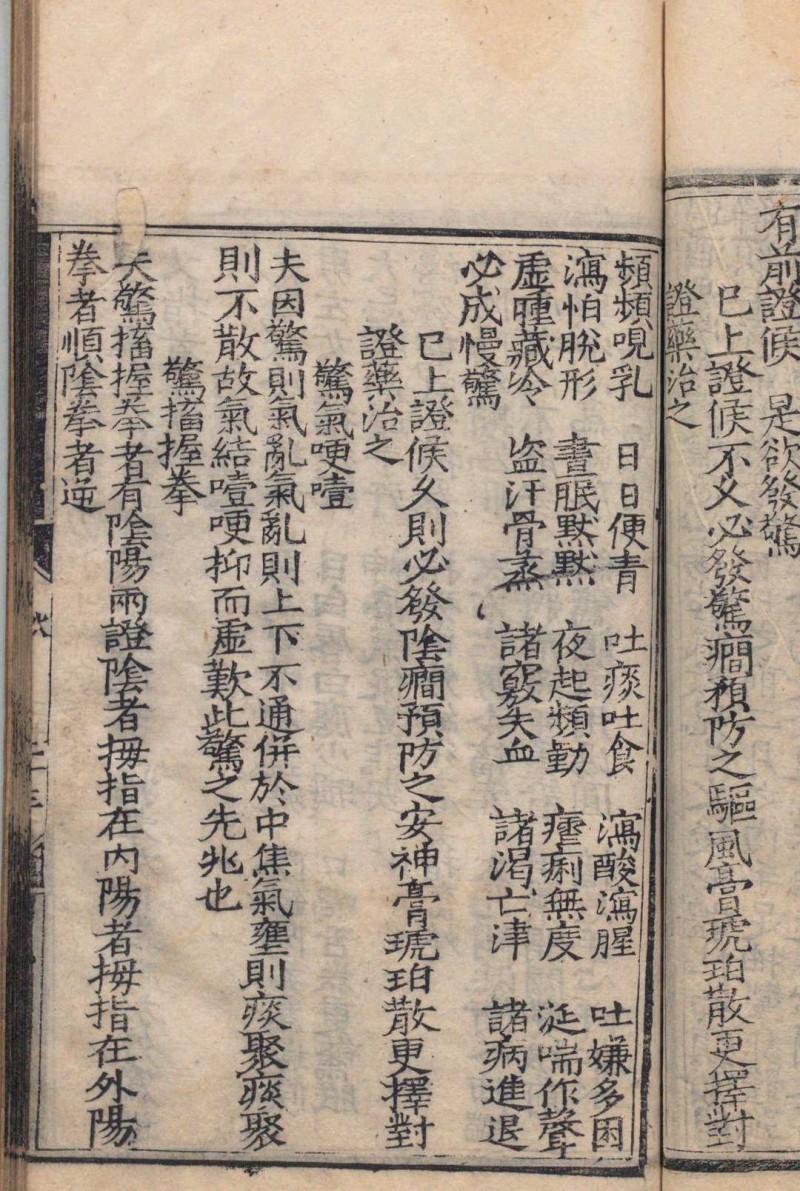 有前證候　是欲發驚
巳上證候不乆必發驚癇預防之驅風膏琥珀散更擇對
證藥治之
頻頻哯乳　日日便青　吐痰吐食　瀉酸瀉腥　吐嫌多困
瀉怕脫形　晝眠默默　夜起頻勤　瘧痢無度　涎喘作聲
虛腫藏冷　盜汗骨蒸　諸竅失血　諸渴亡津　諸病進退
必成慢驚
巳上證候乆則必發陰癇預防之安神膏琥珀散更擇對
證藥治之
驚氣哽噎
夫因驚則氣亂氣亂則上下不通併於中焦氣壅則痰聚痰聚
則不散故氣結噎哽抑而虛歎此驚之先兆也
驚搐握拳
夫驚搐握拳者有陰陽兩證陰者拇指在內陽者拇指在外陽
拳者順陰拳者逆